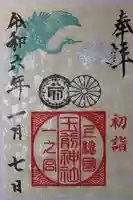 奉拝
初詣
上總國
玉前神社
一之宮
令和六年一月七日